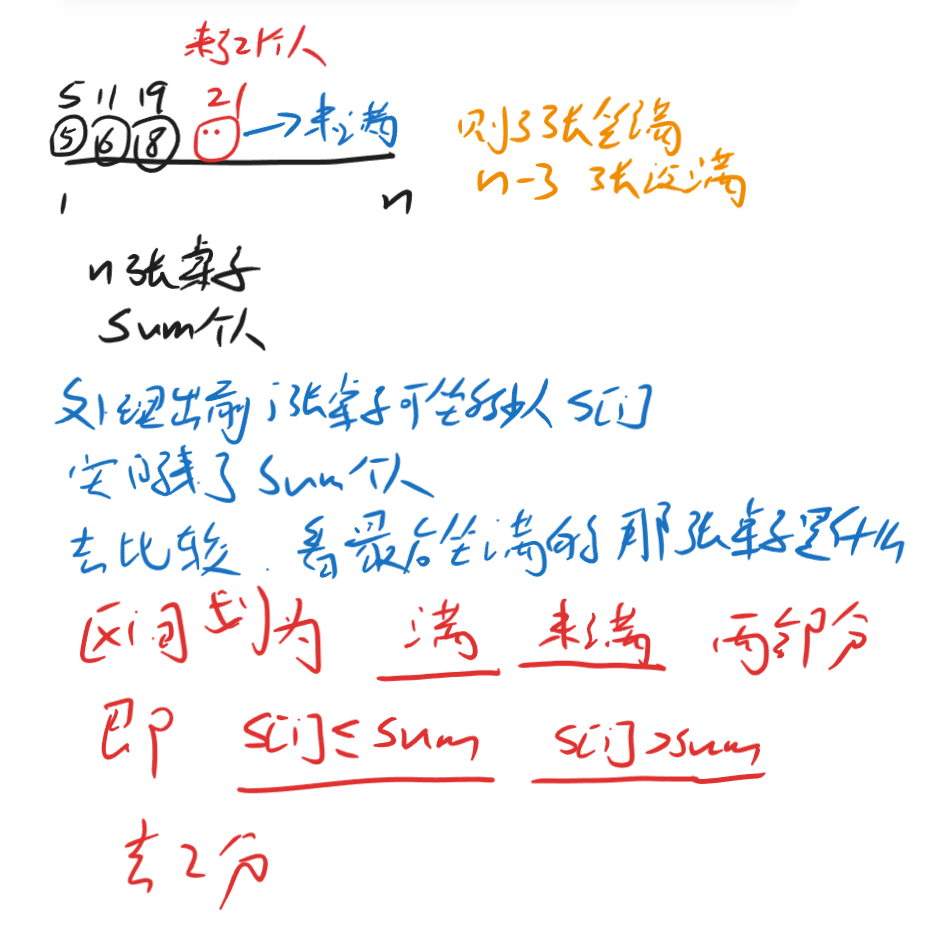 来了21个人
5 11 19 21
5 6 8 →未坐满 则3张全满
1 n n-3 张没满
n张桌子
sum个人
处理出前i张桌子可坐多少人 s[i]
实际来了sum个人
去比较.看最后坐满的那张桌子是什么
区间划为 满 未满 两部分
即 s[i]≤sum s[i]>sum
去2分